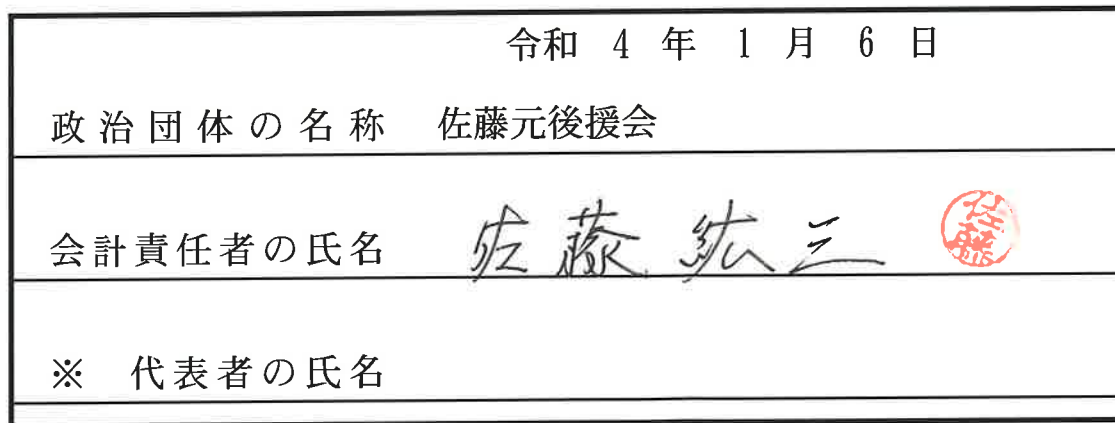 令和 4 年 1 月 6 日
政治団体の名称 佐藤元後援会
会計責任者の氏名 佐藤 紘三 佐藤
※ 代表者の氏名